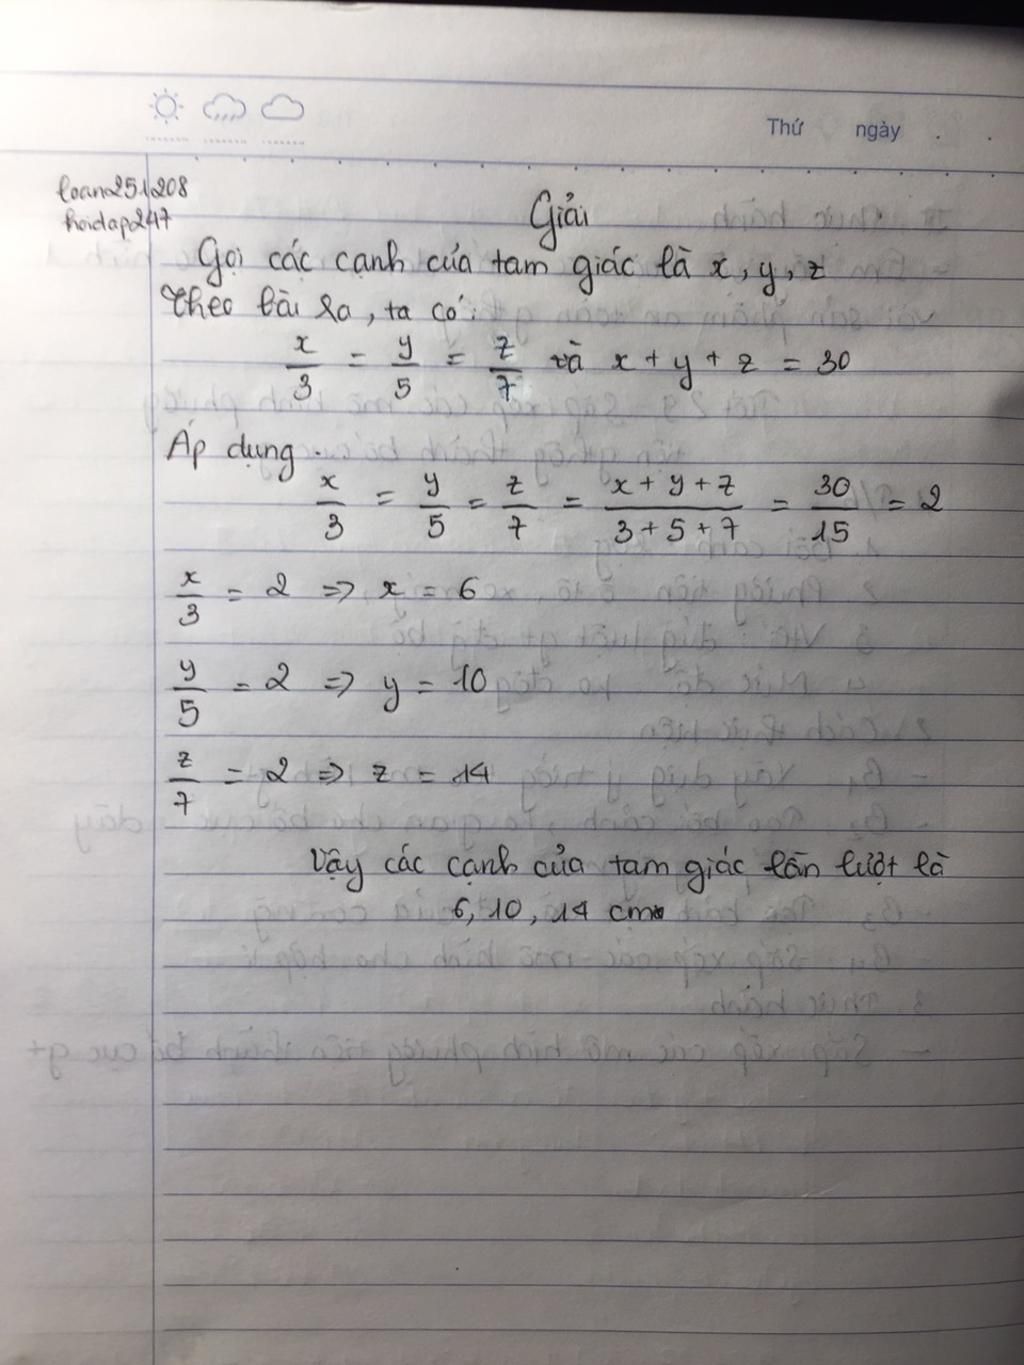 Thứ ngày
loan251208
hoidap247
Giải
Gọi các cạnh của tam giác là x, y, z
Theo bài ra, ta có:
x/3 = y/5 = z/7 và x + y + z = 30
Áp dụng.
x/3 = y/5 = z/7 = x + y + z/3 + 5 + 7 = 30/15 = 2
x/3 = 2 => x = 6
y/5 = 2 => y = 10
z/7 = 2 => z = 14
Vậy các cạnh của tam giác lần lượt là
6, 10, 14 cm